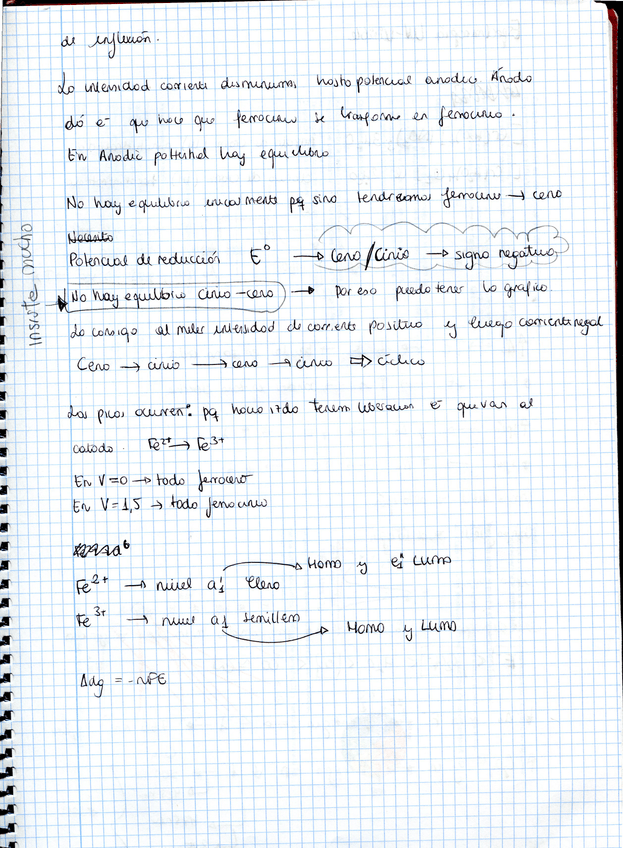 de inflexión.
La intensidad corriente disminuirá, hasta potencial anodic Ánodo
dá e⁻ que hace que ferroceno se trasforme en ferrocinio.
En Anodic potential hay equilibrio
No hay equilibrio unicamente pq sino tendriamos ferrocinio → ceno
Potencial de reducción E° → Ceno/Cinio → signo negativo
Insiste mucho
No hay equilibrio cinio - ceno → por eso puedo tener la grafica
Lo consigo al meter intensidad de corriente positiva y luego corriente negat
Ceno → cinio → ceno → cinio ⇒ cíclico
Los picos ocurren: pq
liberamos e⁻ que van al
catodo. Fe²⁺ → Fe³⁺
En V=0 → todo ferroceno
En V=1,5 → todo ferrocinio
Fe²⁺ → nivel a'₁ lleno → Homo y e₁* LUMO
Fe³⁺ → nivel a'₁ semillen → HOMO y LUMO
Δdg = -nFE